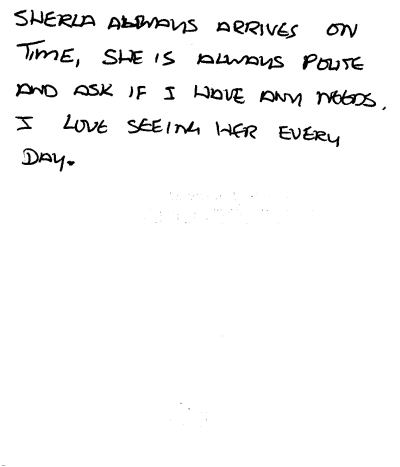 SHERLA ALWAYS ARRIVES ON
TIME, SHE IS ALWAYS POLITE
AND ASK IF I HAVE ANY NEEDS.
I LOVE SEEING HER EVERY
DAY.